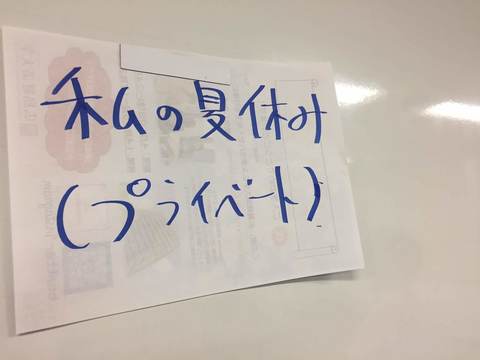 私の夏休み
(プライベート)